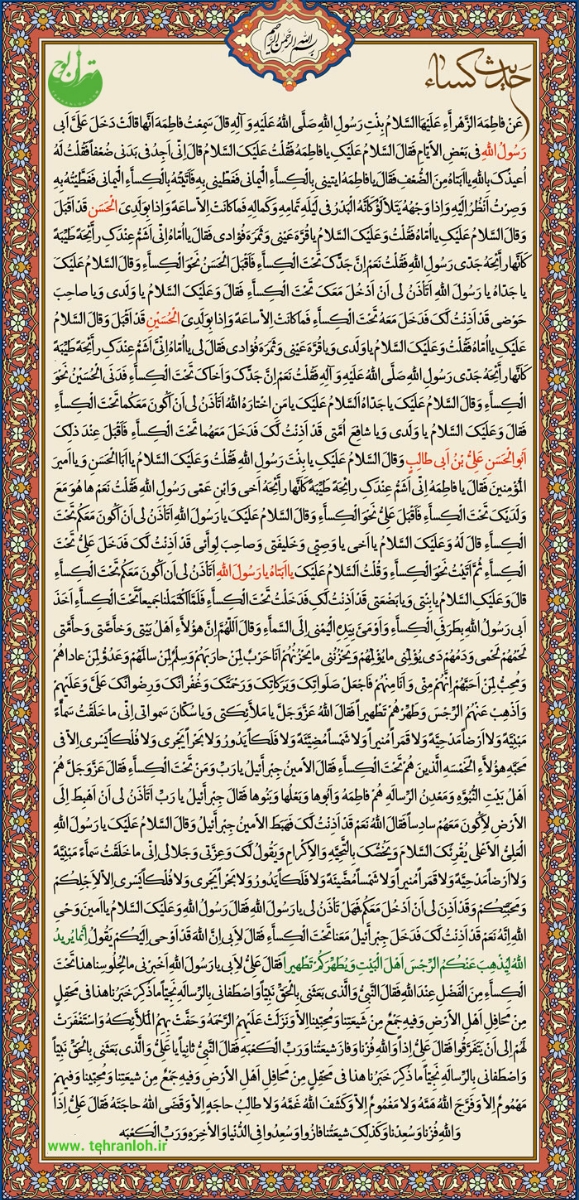 بسم الله الرحمن الرحیم
حدیث کساء
تهران لوح
عن فاطمة الزهراء علیها السلام بنت رسول الله صلی الله علیه و آله قال سمعت فاطمة انها قالت دخل علی ابی
رسول الله فی بعض الأیام فقال السلام علیک یا فاطمة فقلت علیک السلام قال انی اجد فی بدنی ضعفا فقلت له
اعیذک بالله یا ابتاه من الضعف فقال یا فاطمة ایتینی بالکساء الیمانی فغطینی به فاتیته بالکساء الیمانی فغطیته به
وصرت انظر الیه واذا وجهه یتلألؤ کأنه البدر فی لیلة تمامه وکماله فما کانت الا ساعة واذا بولدی الحسن قد اقبل
وقال السلام علیک یا اماه فقلت وعلیک السلام یا قرة عینی وثمرة فؤادی فقال یا اماه انی اشم عندک رائحة طیبة
کأنها رائحة جدی رسول الله فقلت نعم ان جدک تحت الکساء فاقبل الحسن نحو الکساء وقال السلام علیک
یا جداه یا رسول الله اتأذن لی ان ادخل معک تحت الکساء فقال وعلیک السلام یا ولدی ویا صاحب
حوضی قد اذنت لک فدخل معه تحت الکساء فما کانت الا ساعة واذا بولدی الحسین قد اقبل وقال السلام
علیک یا اماه فقلت وعلیک السلام یا ولدی ویا قرة عینی وثمرة فؤادی فقال لی یا اماه انی اشم عندک رائحة طیبة
کأنها رائحة جدی رسول الله صلی الله علیه و آله فقلت نعم ان جدک واخاک تحت الکساء فدنی الحسین نحو
الکساء وقال السلام علیک یا جداه السلام علیک یا من اختاره الله اتأذن لی ان اکون معکما تحت الکساء
فقال وعلیک السلام یا ولدی ویا شافع امتی قد اذنت لک فدخل معهما تحت الکساء فاقبل عند ذلک
ابو الحسن علی بن ابی طالب وقال السلام علیک یا بنت رسول الله فقلت وعلیک السلام یا ابا الحسن ویا امیر
المؤمنین فقال یا فاطمة انی اشم عندک رائحة طیبة کأنها رائحة اخی وابن عمی رسول الله فقلت نعم ها هو مع
ولدیک تحت الکساء فاقبل علی نحو الکساء وقال السلام علیک یا رسول الله اتأذن لی ان اکون معکم تحت
الکساء قال له وعلیک السلام یا اخی یا وصیی وخلیفتی وصاحب لوائی قد اذنت لک فدخل علی تحت
الکساء ثم اتیت نحو الکساء وقلت السلام علیک یا ابتاه یا رسول الله اتأذن لی ان اکون معکم تحت الکساء
قال وعلیک السلام یا بنتی ویا بضعتی قد اذنت لک فدخلت تحت الکساء فلما اکتملنا جمیعا تحت الکساء اخذ
ابی رسول الله بطرفی الکساء واومئ بیده الیمنی الی السماء وقال اللهم ان هؤلاء اهل بیتی وخاصتی وحامتی
لحمهم لحمی ودمهم دمی یؤلمنی ما یؤلمهم ویحزننی ما یحزنهم انا حرب لمن حاربهم وسلم لمن سالمهم وعدو لمن عاداهم
ومحب لمن احبهم انهم منی وانا منهم فاجعل صلواتک وبرکاتک ورحمتک وغفرانک ورضوانک علی وعلیهم
واذهب عنهم الرجس وطهرهم تطهیرا فقال الله عز وجل یا ملائکتی ویا سکان سمواتی انی ما خلقت سماء
مبنیة ولا ارضا مدحیة ولا قمرا منیرا ولا شمسا مضیئة ولا فلکا یدور ولا بحرا یجری ولا فلکا یسری الا فی
محبة هؤلاء الخمسة الذین هم تحت الکساء فقال الأمین جبرائیل یا رب ومن تحت الکساء فقال عز وجل هم
اهل بیت النبوة ومعدن الرسالة هم فاطمة وابوها وبعلها وبنوها فقال جبرائیل یا رب اتأذن لی ان اهبط الی
الأرض لأکون معهم سادسا فقال الله نعم قد اذنت لک فهبط الأمین جبرائیل وقال السلام علیک یا رسول الله
العلی الأعلی یقرئک السلام ویخصک بالتحیة والإکرام ویقول لک وعزتی وجلالی انی ما خلقت سماء مبنیة
ولا ارضا مدحیة ولا قمرا منیرا ولا شمسا مضیئة ولا فلکا یدور ولا بحرا یجری ولا فلکا یسری الا لأجلکم
ومحبتکم وقد اذن لی ان ادخل معکم فهل تأذن لی یا رسول الله فقال رسول الله وعلیک السلام یا امین وحی
الله انه نعم قد اذنت لک فدخل جبرائیل معنا تحت الکساء فقال لأبی ان الله قد اوحی الیکم یقول انما یرید
الله لیذهب عنکم الرجس اهل البیت ویطهرکم تطهیرا فقال علی لأبی یا رسول الله اخبرنی ما لجلوسنا هذا تحت
الکساء من الفضل عند الله فقال النبی والذی بعثنی بالحق نبیا واصطفانی بالرسالة نجیا ما ذکر خبرنا هذا فی محفل
من محافل اهل الأرض وفیه جمع من شیعتنا ومحبینا الا ونزلت علیهم الرحمة وحفت بهم الملائکة واستغفرت
لهم الی ان یتفرقوا فقال علی اذا والله فزنا وفاز شیعتنا ورب الکعبة فقال النبی ثانیا یا علی والذی بعثنی بالحق نبیا
واصطفانی بالرسالة نجیا ما ذکر خبرنا هذا فی محفل من محافل اهل الأرض وفیه جمع من شیعتنا ومحبینا وفیهم
مهموم الا وفرج الله همه ولا مغموم الا وکشف الله غمه ولا طالب حاجة الا وقضی الله حاجته فقال علی اذا
والله فزنا وسعدنا وکذلک شیعتنا فازوا وسعدوا فی الدنیا والآخرة ورب الکعبة
www. tehranloh.ir